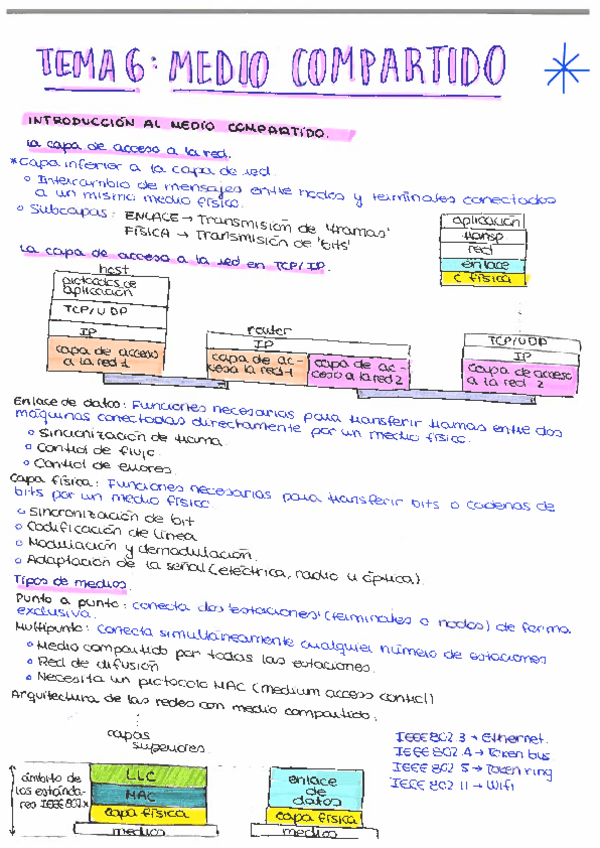 TEMA 6: MEDIO COMPARTIDO
INTRODUCCIÓN AL MEDIO COMPARTIDO.
La capa de acceso a la red.
*Capa inferior a la capa de red.
o Intercambio de mensajes entre nodos y terminales conectados
a un mismo medio físico.
o Subcapas: ENLACE → Transmisión de 'tramas'
FÍSICA → Transmisión de 'bits'
aplicación
transp
red
enlace
c física
La capa de acceso a la red en TCP/IP.
host
protocolos de
aplicación
TCP/UDP
IP
capa de acceso
a la red 1
router
IP
capa de ac-
ceso a la red 1
capa de ac-
ceso a la red 2
TCP/UDP
IP
capa de acceso
a la red 2
Enlace de datos: Funciones necesarias para transferir tramas entre dos
máquinas conectadas directamente por un medio físico.
o Sincronización de trama.
o Control de flujo
o Control de errores.
Capa física: Funciones necesarias para transferir bits o cadenas de
bits por un medio físico
o Sincronización de bit
o Codificación de línea
o Modulación y demodulación.
o Adaptación de la señal (eléctrica, radio u óptica).
Tipos de medios.
Punto a punto: conecta dos 'estaciones' (terminales o nodos) de forma
exclusiva.
Multipunto: Conecta simultáneamente cualquier número de estaciones
o Medio compartido por todas las estaciones.
o Red de difusión
o Necesita un protocolo MAC (medium access control)
Arquitectura de las redes con medio compartido:
capas
superiores.
ámbito de
los estánda-
res IEEE 802.x
LLC
MAC
capa física
medios
enlace
de
datos
capa física
medios
IEEE 802.3 → Ethernet.
IEEE 802.4 → Token bus
IEEE 802.5 → Token ring
IEEE 802.11 → Wifi